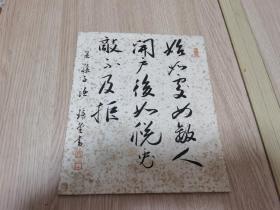 始如處女敵人
開戶後如脫兔
敵不及拒
孫子語